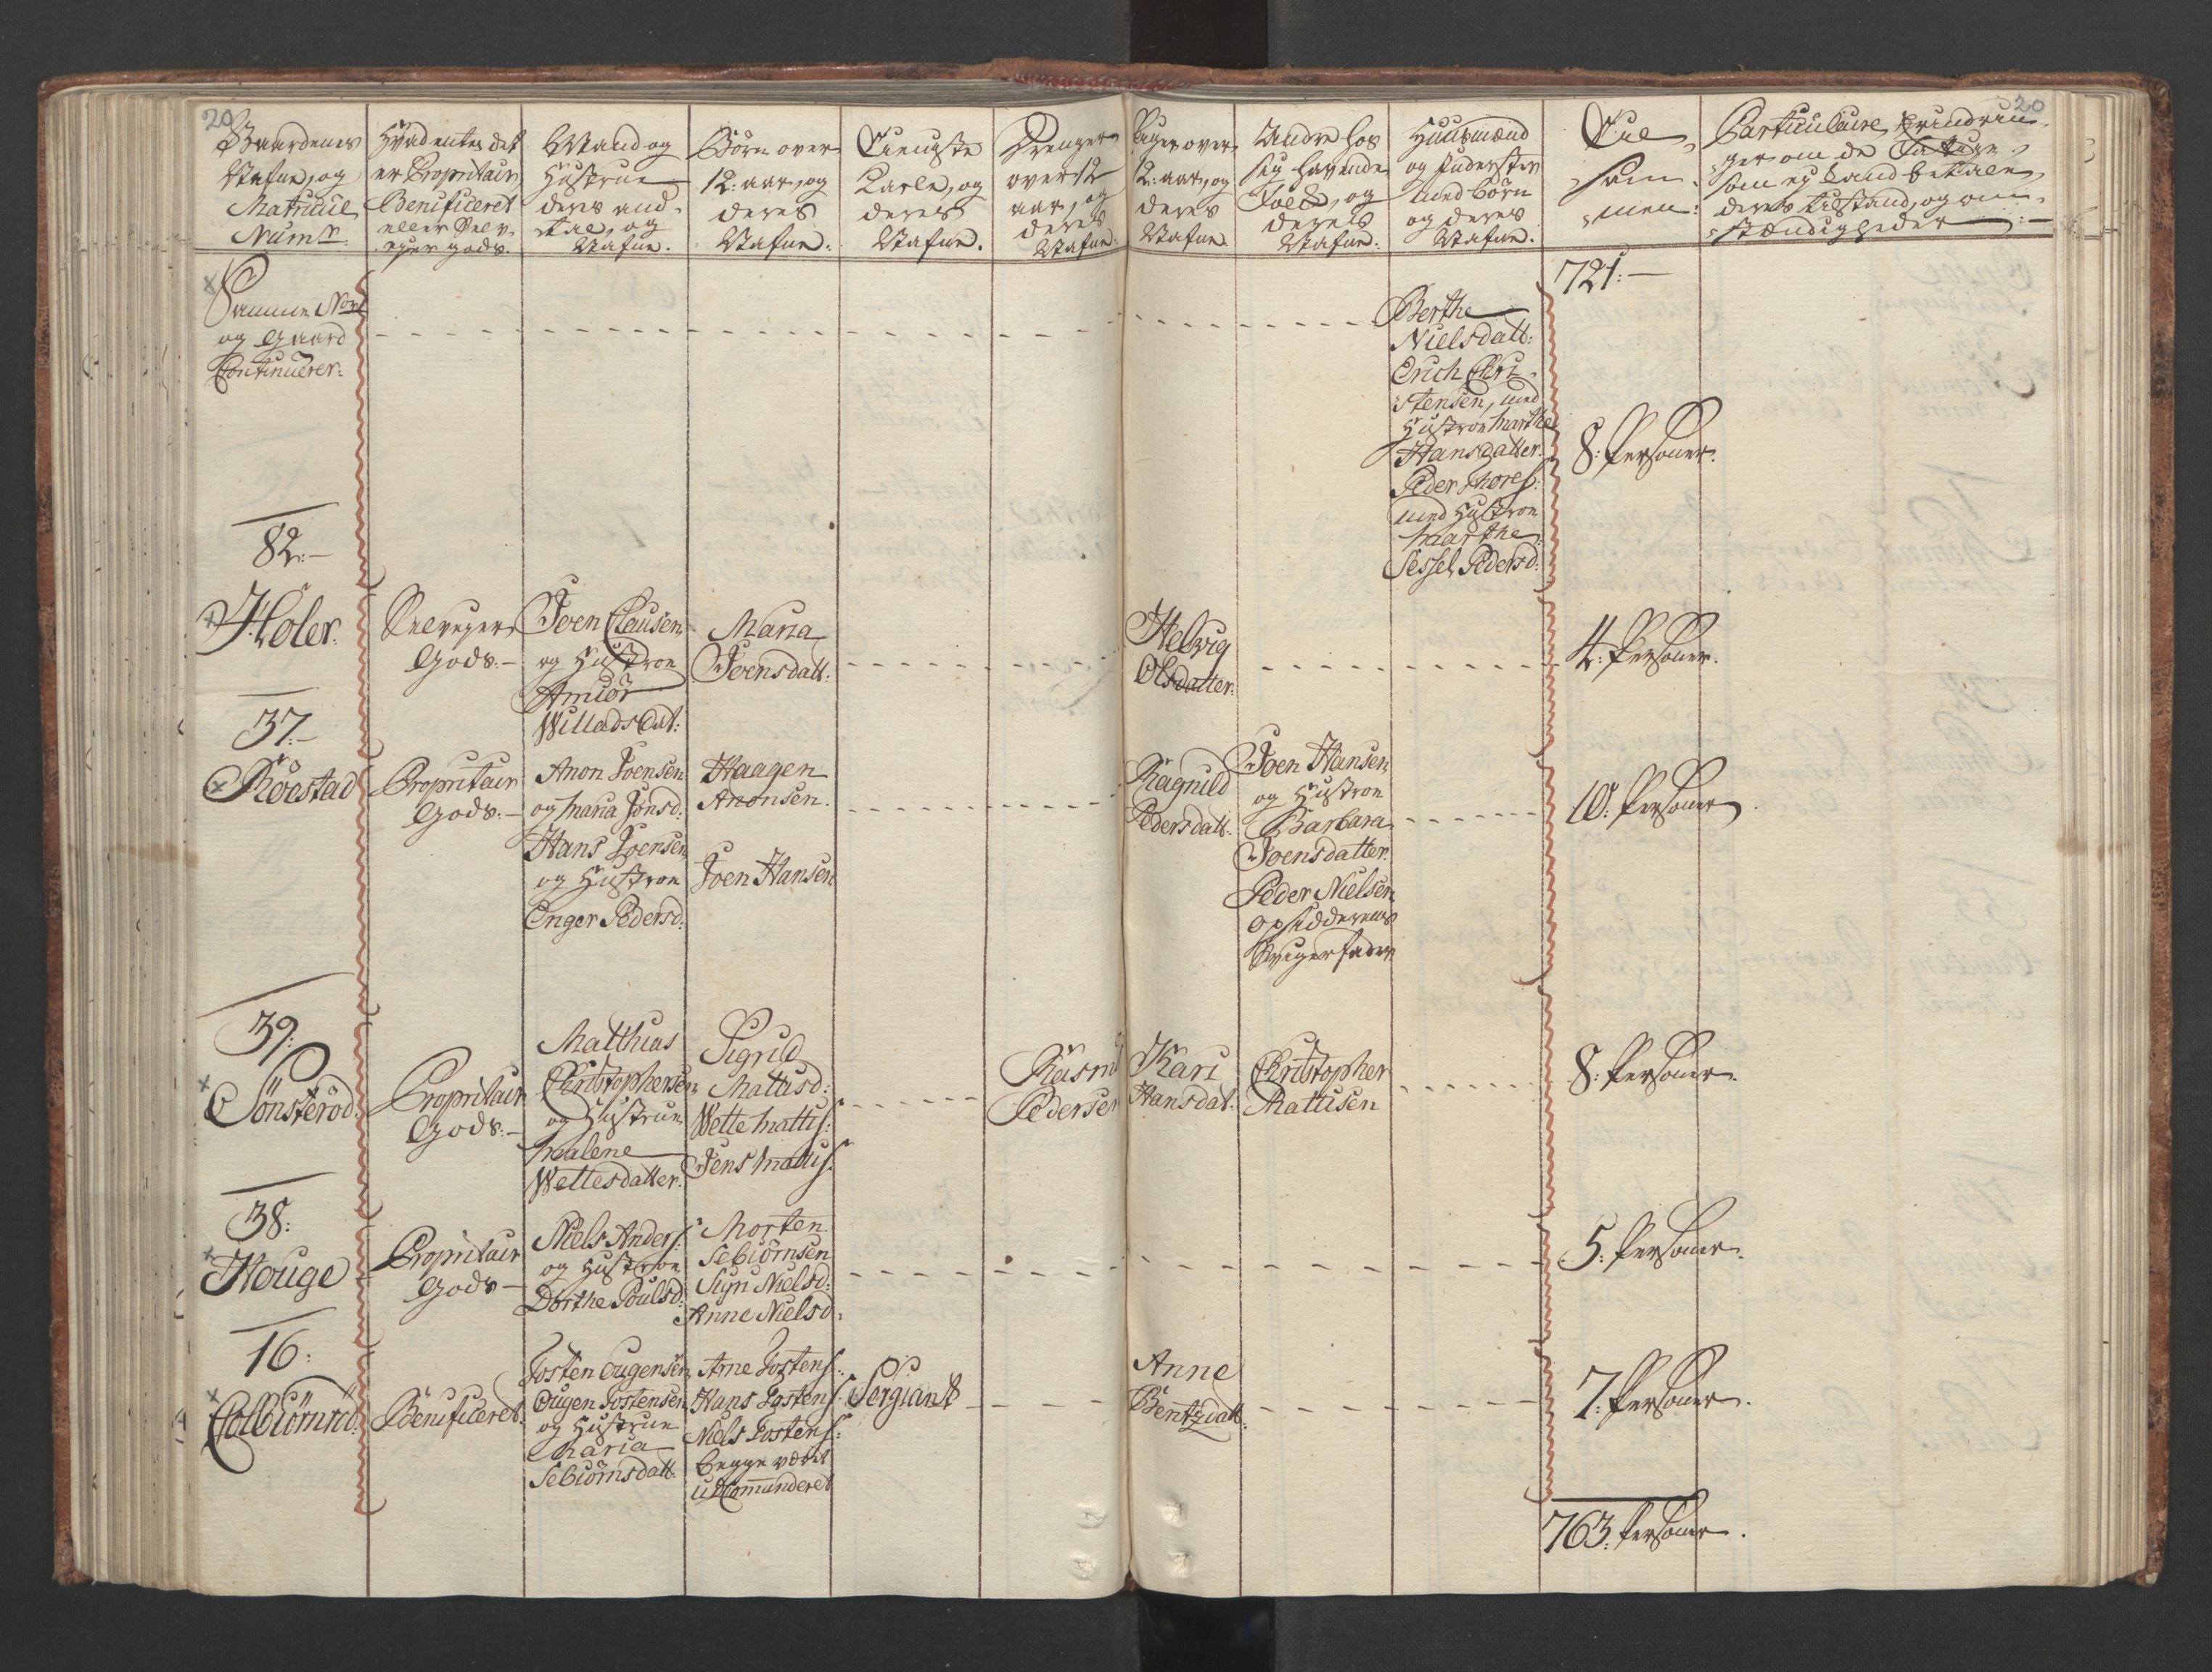 20
20
Gaardenes
Nafne, og
Matricul
Num̅r:
Hvad enten det
er Propritair,
Benificeret
eller Selv-
eyer gods.
Mand og
Hustrue
deres and-
tal, og
Nafne.
Børn over
12: aar, og
deres
Nafne.
Tieniste
Karle, og
deres
Nafne.
Drenger
over 12
aar, og
deres
Nafne.
Piger over
12: aar, og
deres
Nafne.
Andre hos
sig havende
Folk, og
deres
Nafne.
Huusmænd
og Inderster
med børn
og deres
Nafne.
Til
sam-
men:
Particulaire Erindrin-
ger om de
som ej kand betale,
deres tilstand, og om-
stændigheder
721:
Samme Nor
og Gaard
Continuerer:
Berthe
Nielsdatt:
Erich Chri-
stensen, med
Hustroe Marthe
Hansdatter.
Peder Thores:
med Hustroe
Marthe
Sessel Pedersd:
8: Personer.
82:
Holer.
Selveyer
Gods.
Joen Clausen
og Hustroe
Amiør
Willads Dat:
Maria
Joensdatt:
Helvig
Olsdatter:
4: Personer.
37:
Röestad
Propritair
Gods.
Anon Joensen
og Maria Jonsd:
Hans Joensen
og Hustroe
Enger Pedersd:
Haagen
Anonsen.
Joen Hansen
Ragnild
Pedersdatt:
Joen Hansen
og Hustroe
Barbara
Joensdatter.
Peder Nielsen
opsidderens
Svigerfader
10: Personer.
39:
Sönsteröd.
Propritair
Gods.
Matthias
Christophersen
og Hustrue
Malene
Wettesdatter.
Sigrid
Mattisd:
Wette Mattis:
Jens Mattis:
Rasm
Pedersen
Kari
Hansdat:
Christopher
Mattisen
8: Personer.
38:
Houge
Propritair
Gods
Niels Anders:
og Hustroe
Dorthe Poulsd:
Morten
Sebiörnsen
Siyn Nielsd:
Anne Nielsd:
5: Personer.
16:
Colbiörnröd.
Benificeret.
Josten Ougensen
Ougen Jostensen
og Hustrue
Maria
Sebiörnsdatt:
Arne Jostens:
Hans Jostens:
Niels Jostens:
begge været
udcom̅anderet
Sergiant
Anne
Bentzdatt:
7: Personer.
763: Personer.